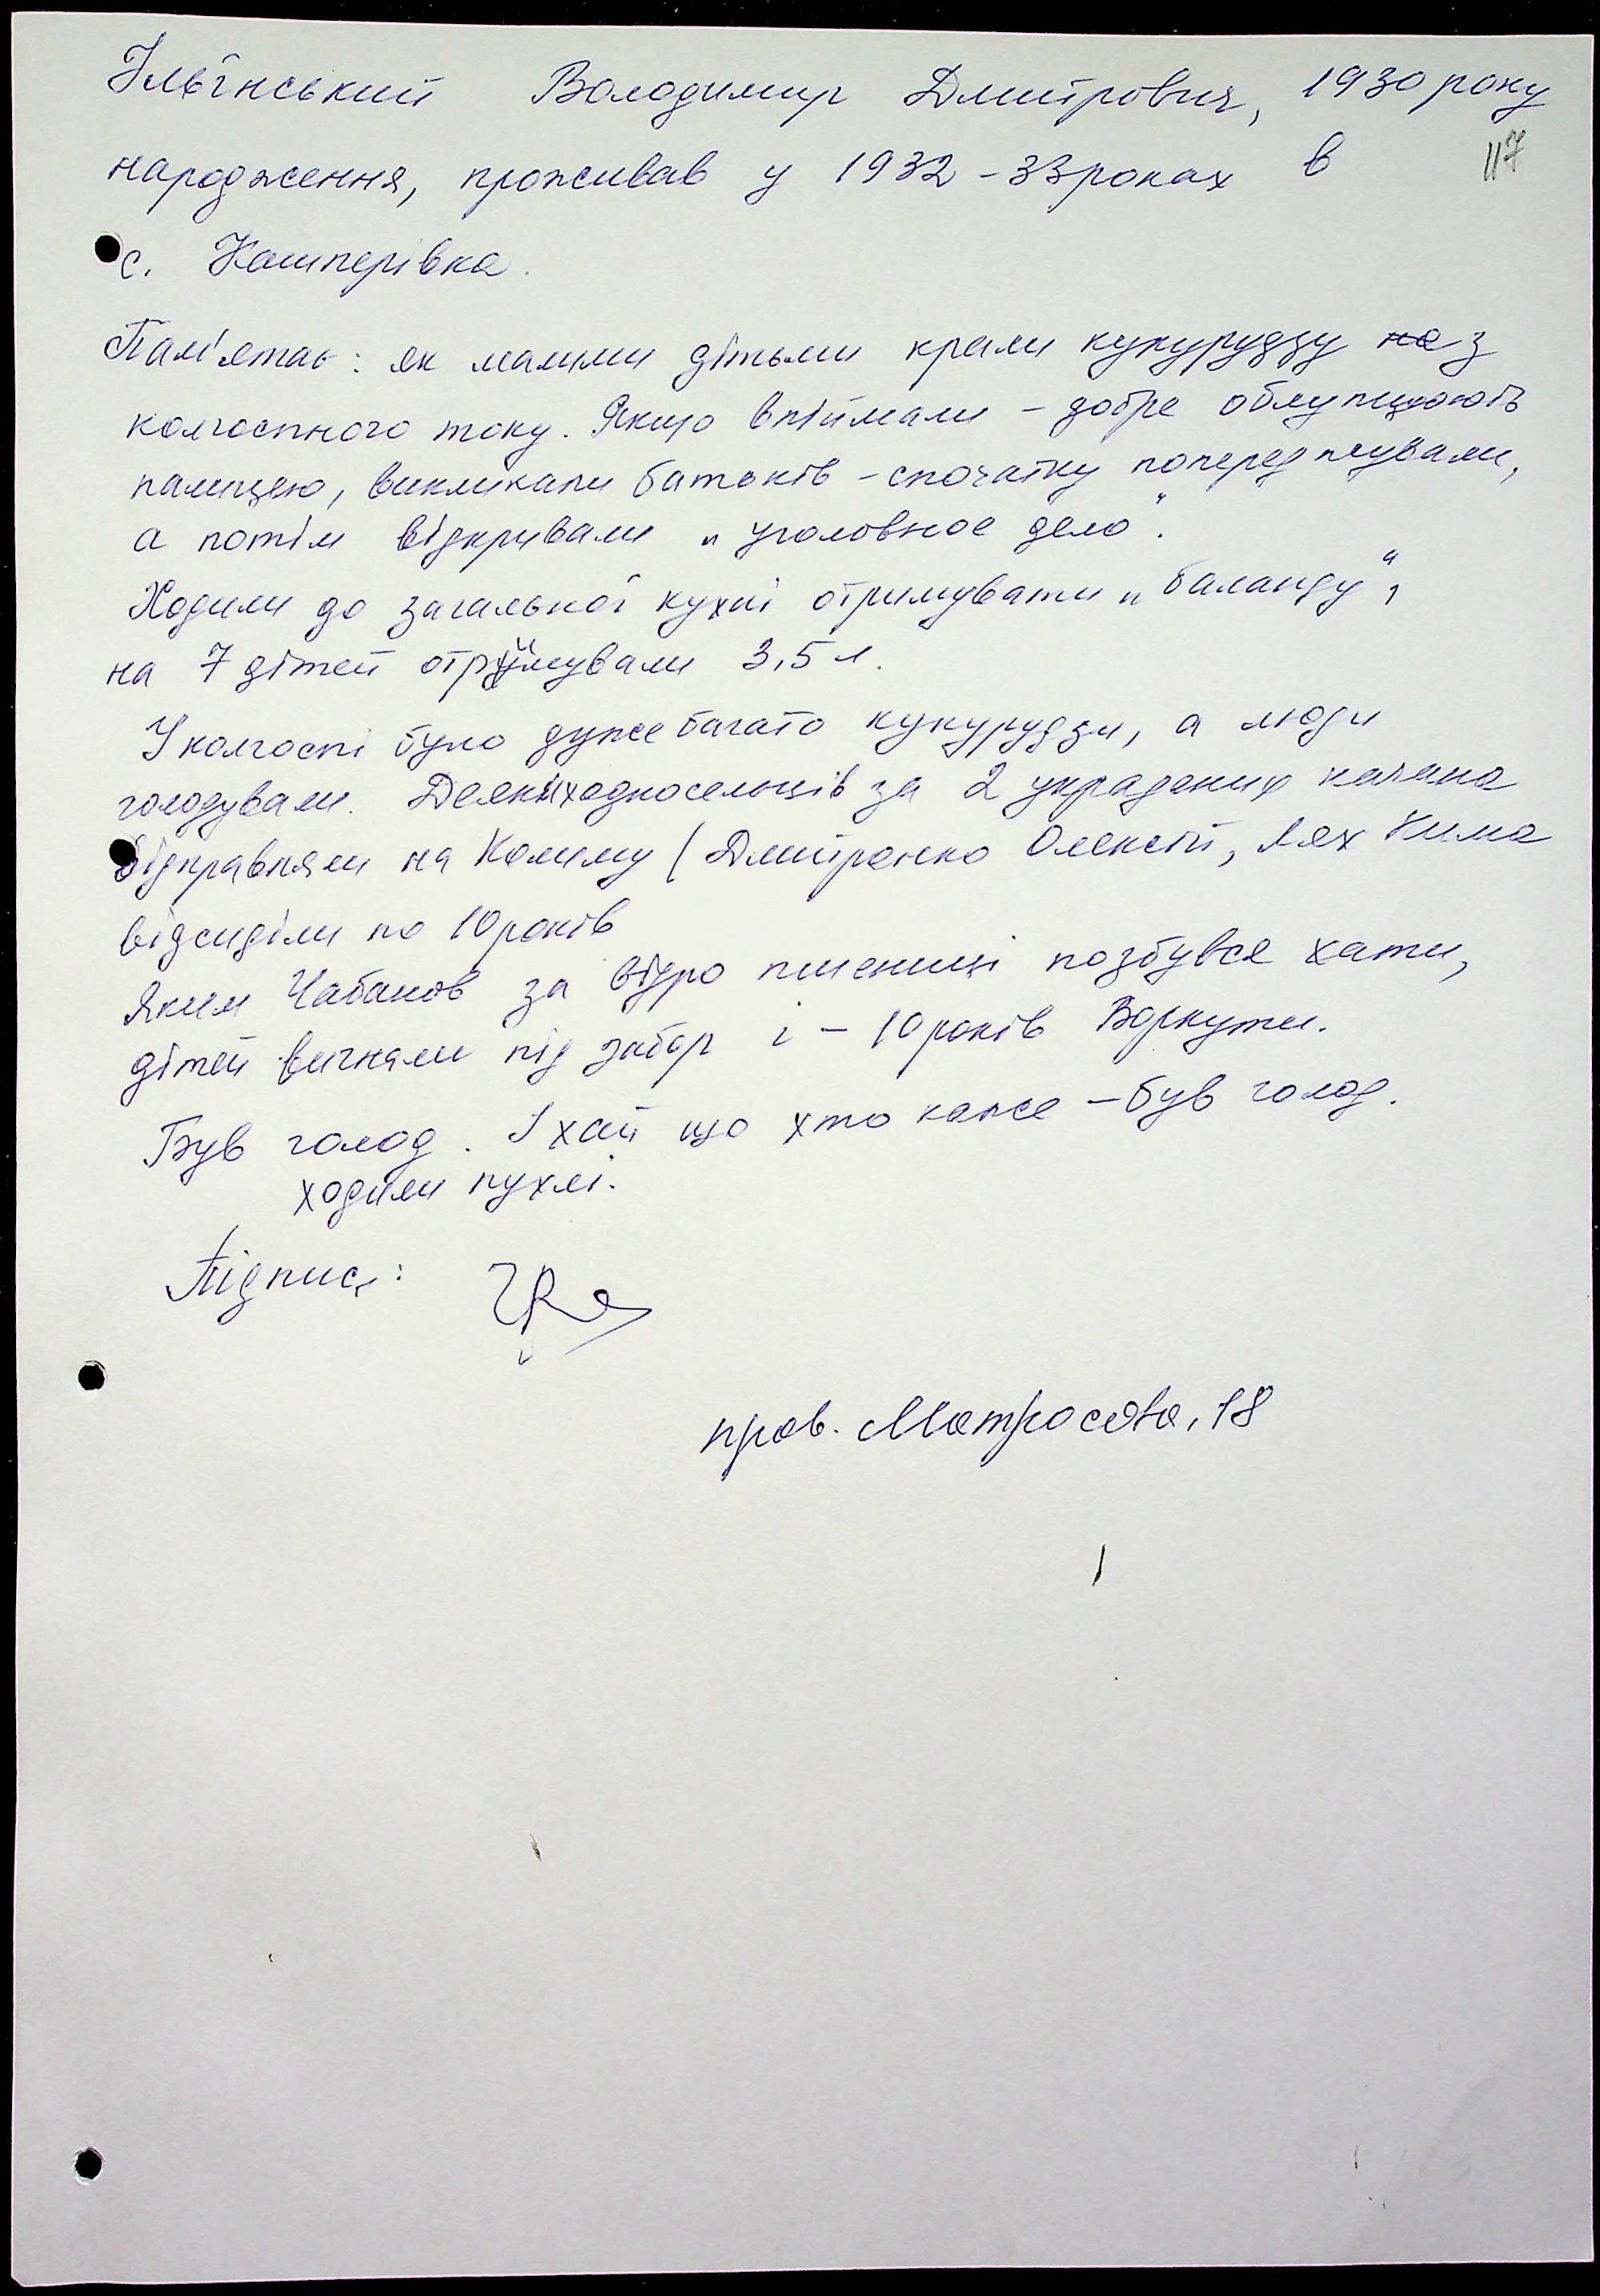 Ільїнський Володимир Дмитрович, 1930 року
117
народження, проживав у 1932 - 33 роках в
с. Кашперівка.
Пам'ятає: як малими дітьми крали кукурудзу на з
колгоспного току. Якщо впіймали - добре облупцюють
палицею, викликали батьків - спочатку попереджували,
а потім відкривали „уголовное дело".
Ходили до загальної кухні отримувати „баланду",
на 7 дітей отримували 3,5 л.
У колгоспі було дуже багато кукурудзи, а люди
голодували. Деяких односельців за 2 украдених качана
відправляли на Колиму (Дмитренко Олексій, Лях
відсиділи по 10 років
Яким Чабанов за відро пшениці позбувся хати,
дітей вигнали під забор і - 10 років Воркути.
Був голод. І хай що хто каже - був голод.
ходили пухлі.
Підпис:
пров. Матросова, 18